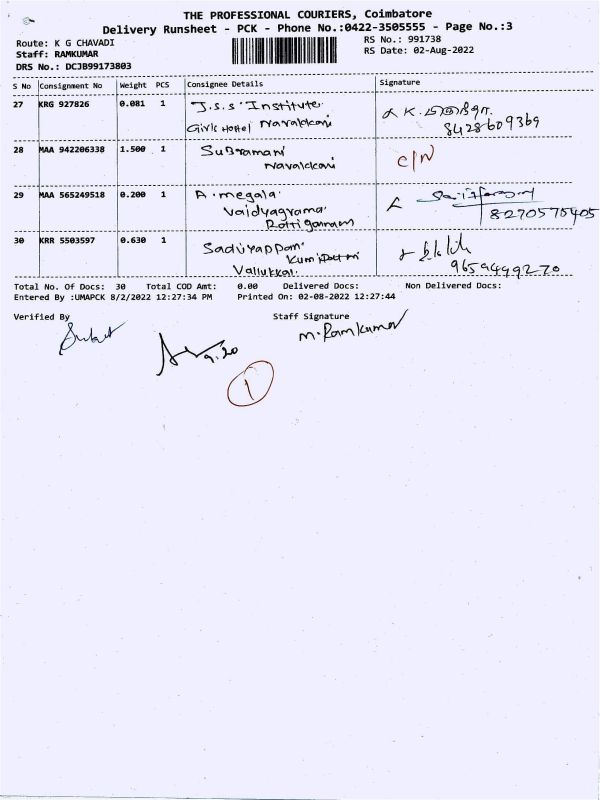 THE PROFESSIONAL COURIERS, Coimbatore
Delivery Runsheet - PCK - Phone No.:0422-3505555 - Page No.:3
Route: K G CHAVADI
RS No.: 991738
Staff: RAMKUMAR
RS Date: 02-Aug-2022
DRS No.: DCJB99173803
S No Consignment No Weight PCS Consignee Details Signature
27 KRG 927826 0.081 1 J.S.S' Institute
Girls Hostel Navakkarai
8428609369
28 MAA 942206338 1.500 1 Subramani C/N
Navakkarai
29 MAA 565249518 0.200 1 A. megala
Vaidyagrama
8270575405
30 KRR 5503597 0.630 1
9659499270
Total No. Of Docs: 30 Total COD Amt: 0.00 Delivered Docs: Non Delivered Docs:
Entered By :UMAPCK 8/2/2022 12:27:34 PM Printed On: 02-08-2022 12:27:44
Verified By Staff Signature
M. Ramkumar
9.20
1